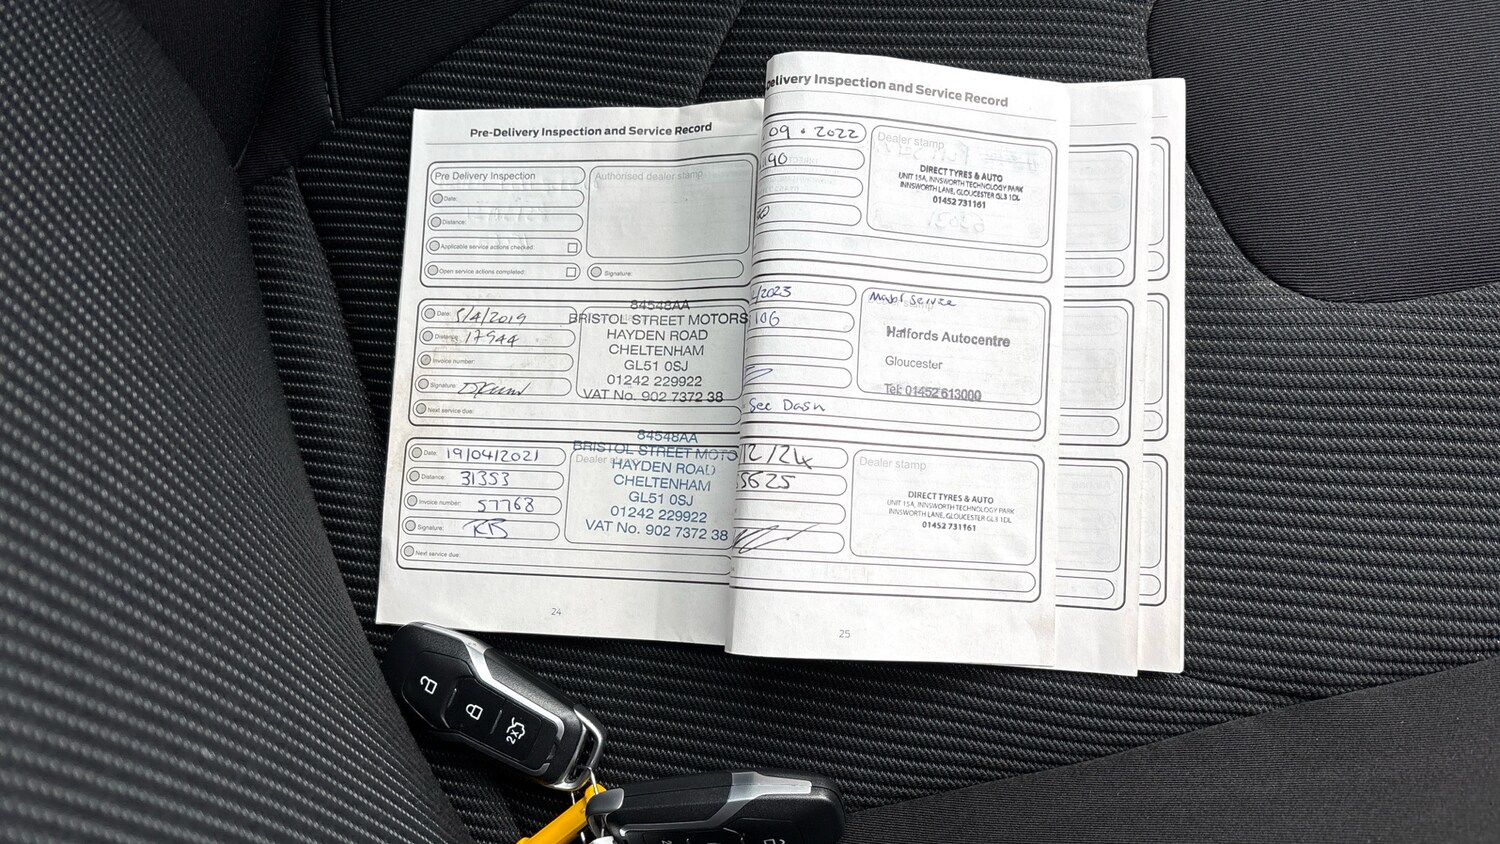 Pre-Delivery Inspection and Service Record
Pre Delivery Inspection
Authorised dealer stamp
Date:
Distance:
Applicable service actions checked:
Open service actions completed:
Signature:
Date: 5/4/2019
Distance: 17944
Invoice number:
Signature:
Next service due:
84548AA
BRISTOL STREET MOTORS
HAYDEN ROAD
CHELTENHAM
GL51 0SJ
01242 229922
VAT No. 902 7372 38
Date: 19/04/2021
Distance: 31353
Invoice number: 57768
Signature: RB
Next service due:
Dealer
84548AA
BRISTOL STREET MOTS
HAYDEN ROAD
CHELTENHAM
GL51 0SJ
01242 229922
VAT No. 902 7372 38
24
elivery Inspection and Service Record
09 . 2022
190
Dealer stamp
DIRECT TYRES & AUTO
UNIT 15A, INNSWORTH TECHNOLOGY PARK
INNSWORTH LANE, GLOUCESTER GL3 1DL
01452 731161
/2023
106
See Dash
Major Service
Halfords Autocentre
Gloucester
Tel: 01452 613000
12/24
5625
Dealer stamp
DIRECT TYRES & AUTO
UNIT 15A, INNSWORTH TECHNOLOGY PARK
INNSWORTH LANE, GLOUCESTER GL3 1DL
01452 731161
25
2X